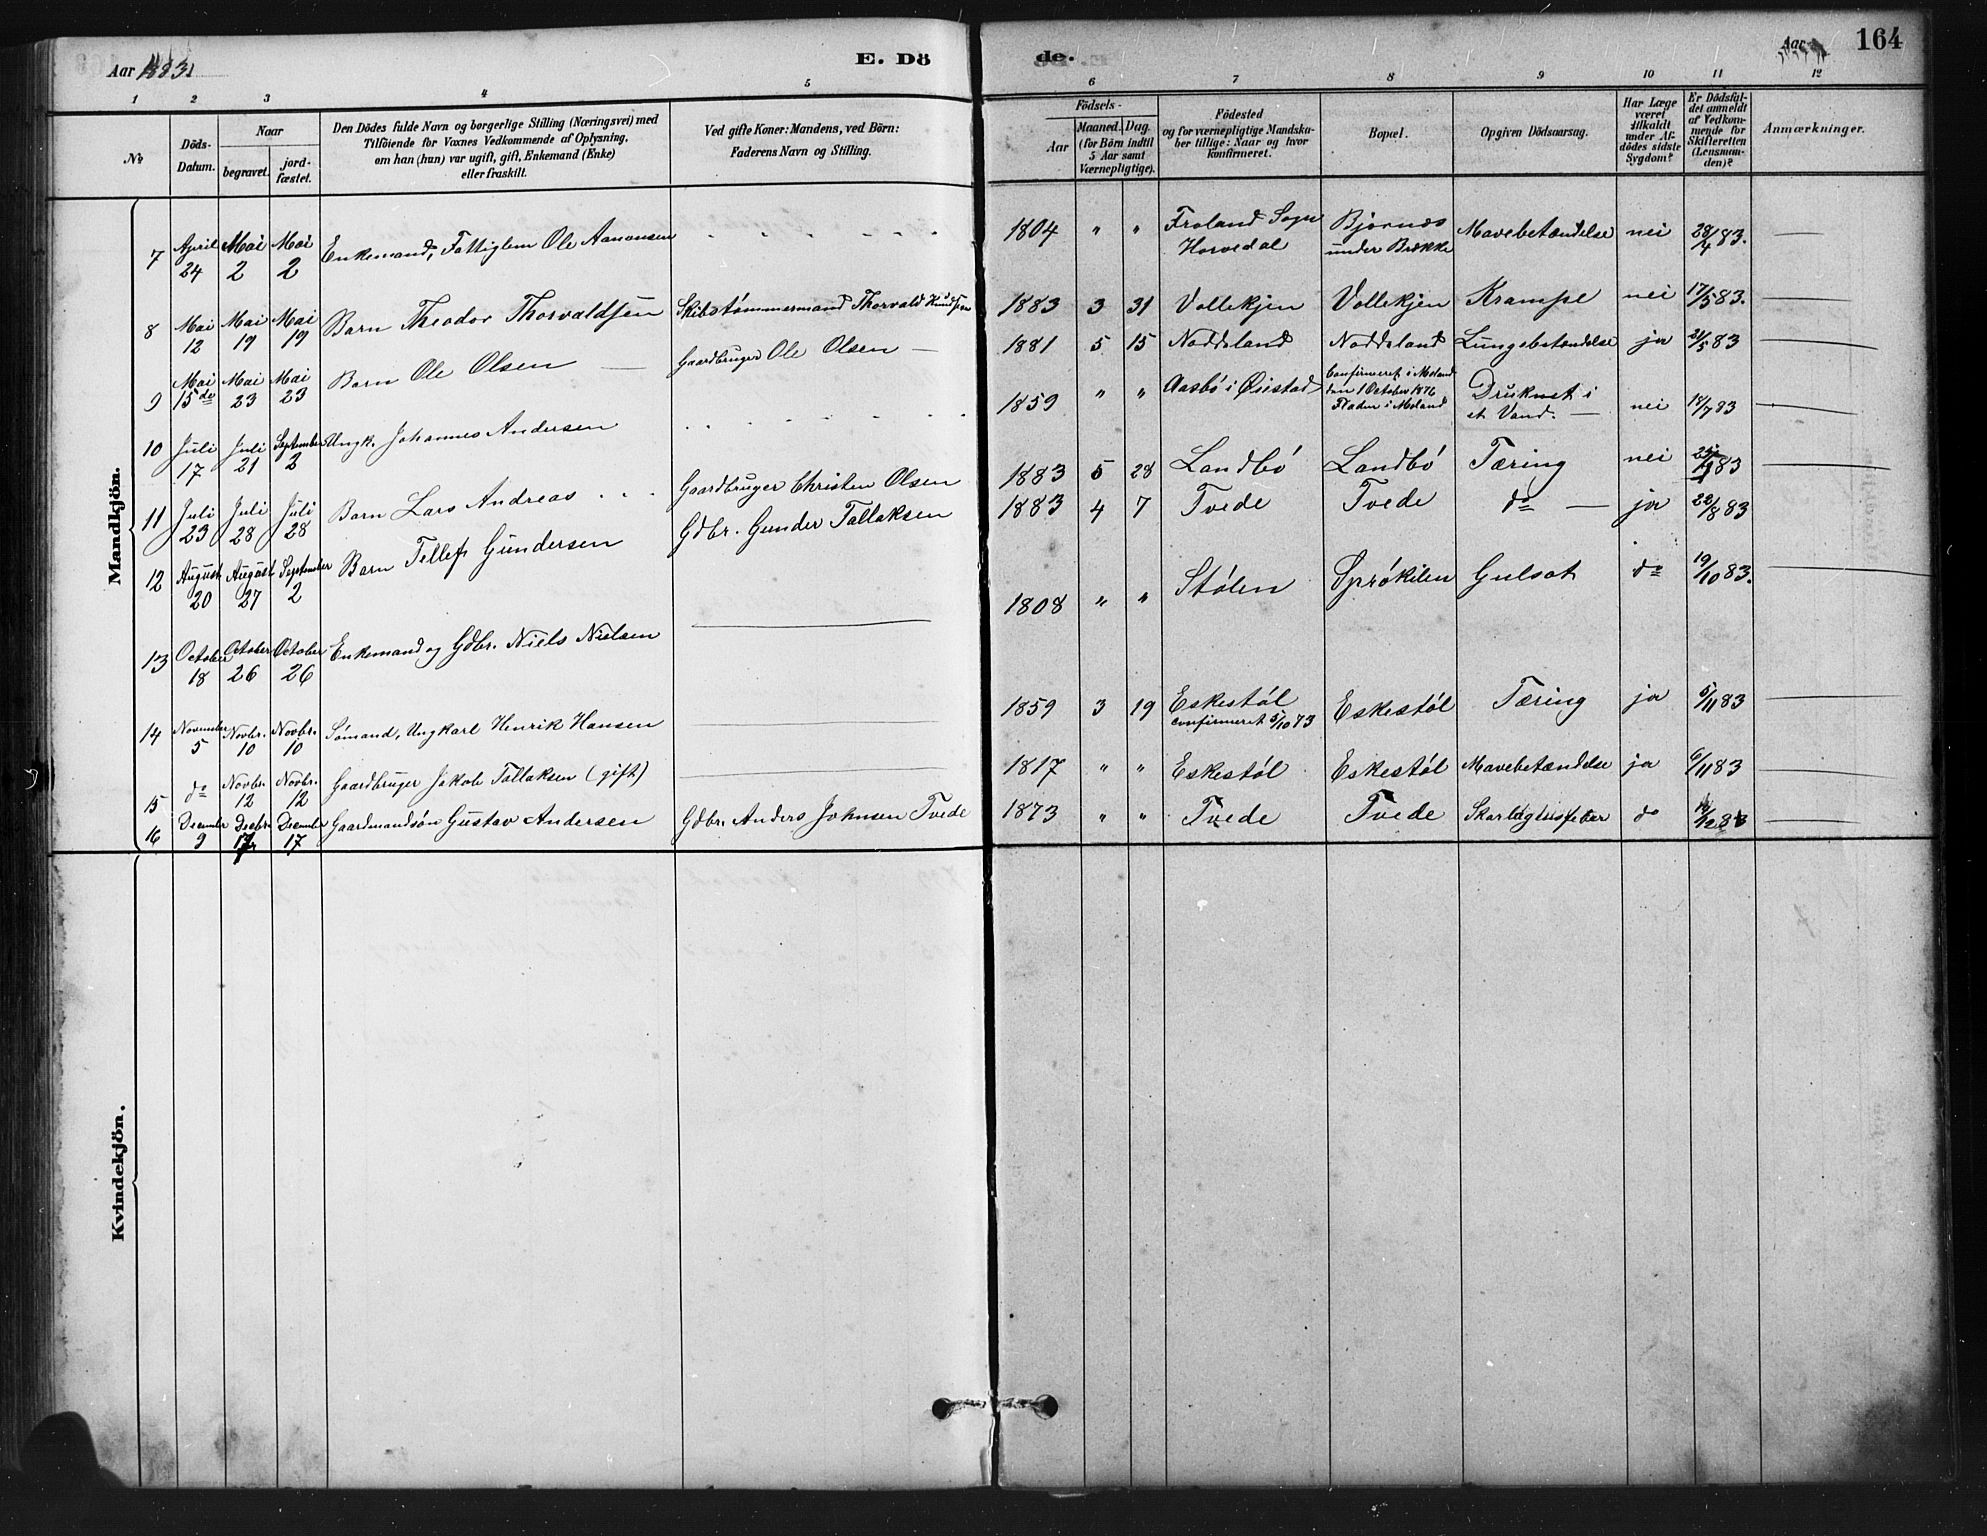 Aar 1883.
E. Dö
de.
Aar
164
1 2 3 4 5 6 7 8 9 10 11 12
No
Döds-
Datum.
Naar
begravet.
jord-
fæstet.
Den Dödes fulde Navn og borgerlige Stilling (Næringsvei) med
Tilföiende for Voxnes Vedkommende af Oplysning,
om han (hun) var ugift, gift, Enkemand (Enke)
eller fraskilt.
Ved gifte Koner: Mandens, ved Börn:
Faderens Navn og Stilling.
Födsels-
Aar
Maaned.
Dag.
(for Börn indtil
5 Aar samt
Værnepligtige).
Födested
og for værnepligtige Mandska-
ber tillige: Naar og hvor
konfirmeret.
Bopæl.
Opgiven Dödsaarsag.
Har Læge
været
tilkaldt
under Af-
dödes sidste
Sygdom?
Er Dödsfal-
det anmeldt
af Vedkom-
mende for
Skifteretten
(Lensman-
den)?
Anmærkninger.
Mandkjön.
7 April 24 Mai 2 Mai 2 Enkemand, Fattiglem Ole Aanonsen 1804 " " Froland Sogn Horvedal Bjørnæs under Brække Mavebetændelse nei 28/4 83.
8 Mai 12 Mai 19 Mai 19 Barn Theodor Thorvaldsen Skibstømmermand Thorvald Knudsen 1883 3 31 Vollekjen Vollekjen Krampe nei 17/5 83.
9 Mai 15de Mai 23 Mai 23 Barn Ole Olsen — Gaardbruger Ole Olsen — 1881 5 15 Noddeland Noddeland Lungebetændelse ja 21/5 83
10 Juli 17 Juli 21 September 2 Ungk. Johannes Andersen 1859 " " Aasbö i Øiestad Confirmeret i Moland den 1 October 1876 Flaten i Moland Druknet i et Vand. — nei 18/7 83
11 Juli 23 Juli 28 Juli 28 Barn Lars Andreas Gaardbruger Christen Olsen 1883 5 28 Landbö Landbö Tæring nei 83
12 August 20 August 27 September 2 Barn Tellef Gundersen Gdbr. Gunder Tallaksen 1883 4 7 Tvede Tvede do — ja 22/8 83
13 October 18 October 26 October 26 Enkemand og Gdbr. Niels Nielsen 1808 " " Stølen Sprøkilen Gulsot do 19/10 83.
14 November 5 Novbr. 10 Novbr. 10 Sömand, Ungkarl Henrik Hansen 1859 3 19 Eskestøl confirmeret 5/10 73 Eskestøl Tæring ja 5/11 83
15 do Novbr. 12 Novbr. 12 Gaardbruger Jakob Tallaksen (gift) 1817 " " Eskestøl Eskestøl Mavebetændelse ja 6/11 83
16 December 9 Decbr. 17 December 17 Gaardmandsön Gustav Andersen Gdbr. Anders Johnsen Tvede 1873 " " Tvede Tvede Skarlagensfeber do 83
Kvindekjön.